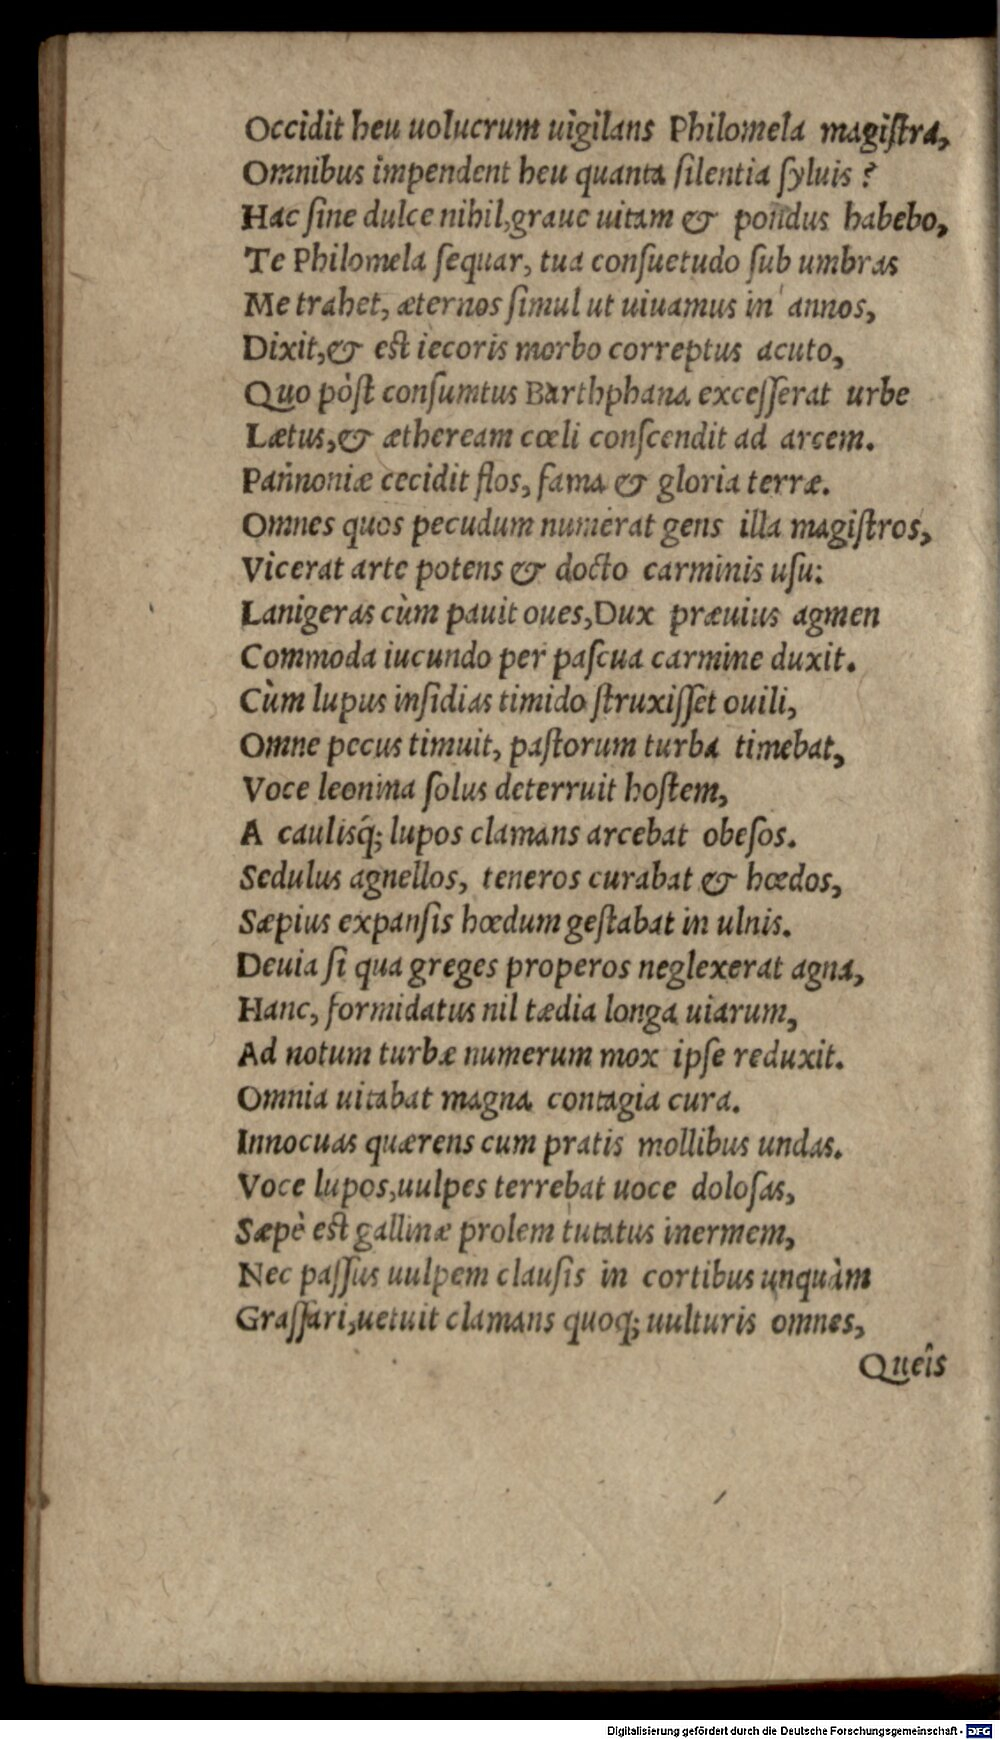 Occidit heu uolucrum uigilans Philomela magiſtra,
Omnibus impendent heu quanta ſilentia ſyluis?
Hac ſine dulce nihil, graue uitam & pondus habebo,
Te Philomela ſequar, tua conſuetudo ſub umbras
Me trahet, æternos ſimul ut uiuamus in annos,
Dixit, & eſt iecoris morbo correptus acuto,
Quo pòſt conſumtus Barthphana exceſſerat urbe
Lætus, & ætheream cœli conſcendit ad arcem.
Pannoniæ cecidit flos, fama & gloria terræ.
Omnes quos pecudum numerat gens illa magiſtros,
Vicerat arte potens & docto carminis uſu:
Lanigeras cùm pauit oues, Dux præuius agmen
Commoda iucundo per paſcua carmine duxit.
Cùm lupus inſidias timido ſtruxiſſet ouili,
Omne pecus timuit, paſtorum turba timebat,
Voce leonina ſolus deterruit hoſtem,
A caulisq́; lupos clamans arcebat obeſos.
Sedulus agnellos, teneros curabat & hœdos,
Sæpius expanſis hœdum geſtabat in ulnis.
Deuia ſi qua greges properos neglexerat agna,
Hanc, formidatus nil tædia longa uiarum,
Ad notum turbæ numerum mox ipſe reduxit.
Omnia uitabat magna contagia cura.
Innocuas quærens cum pratis mollibus undas.
Voce lupos, uulpes terrebat uoce doloſas,
Sæpè eſt gallinæ prolem tutatus inermem,
Nec paſſus uulpem clauſis in cortibus unquàm
Graſſari, uetuit clamans quoq; uulturis omnes,
Queîs
Digitalisierung gefördert durch die Deutsche Forschungsgemeinschaft - DFG